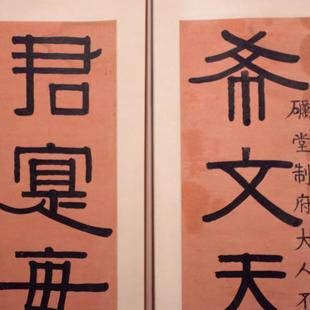 希文天
礪堂制府大人
君寔